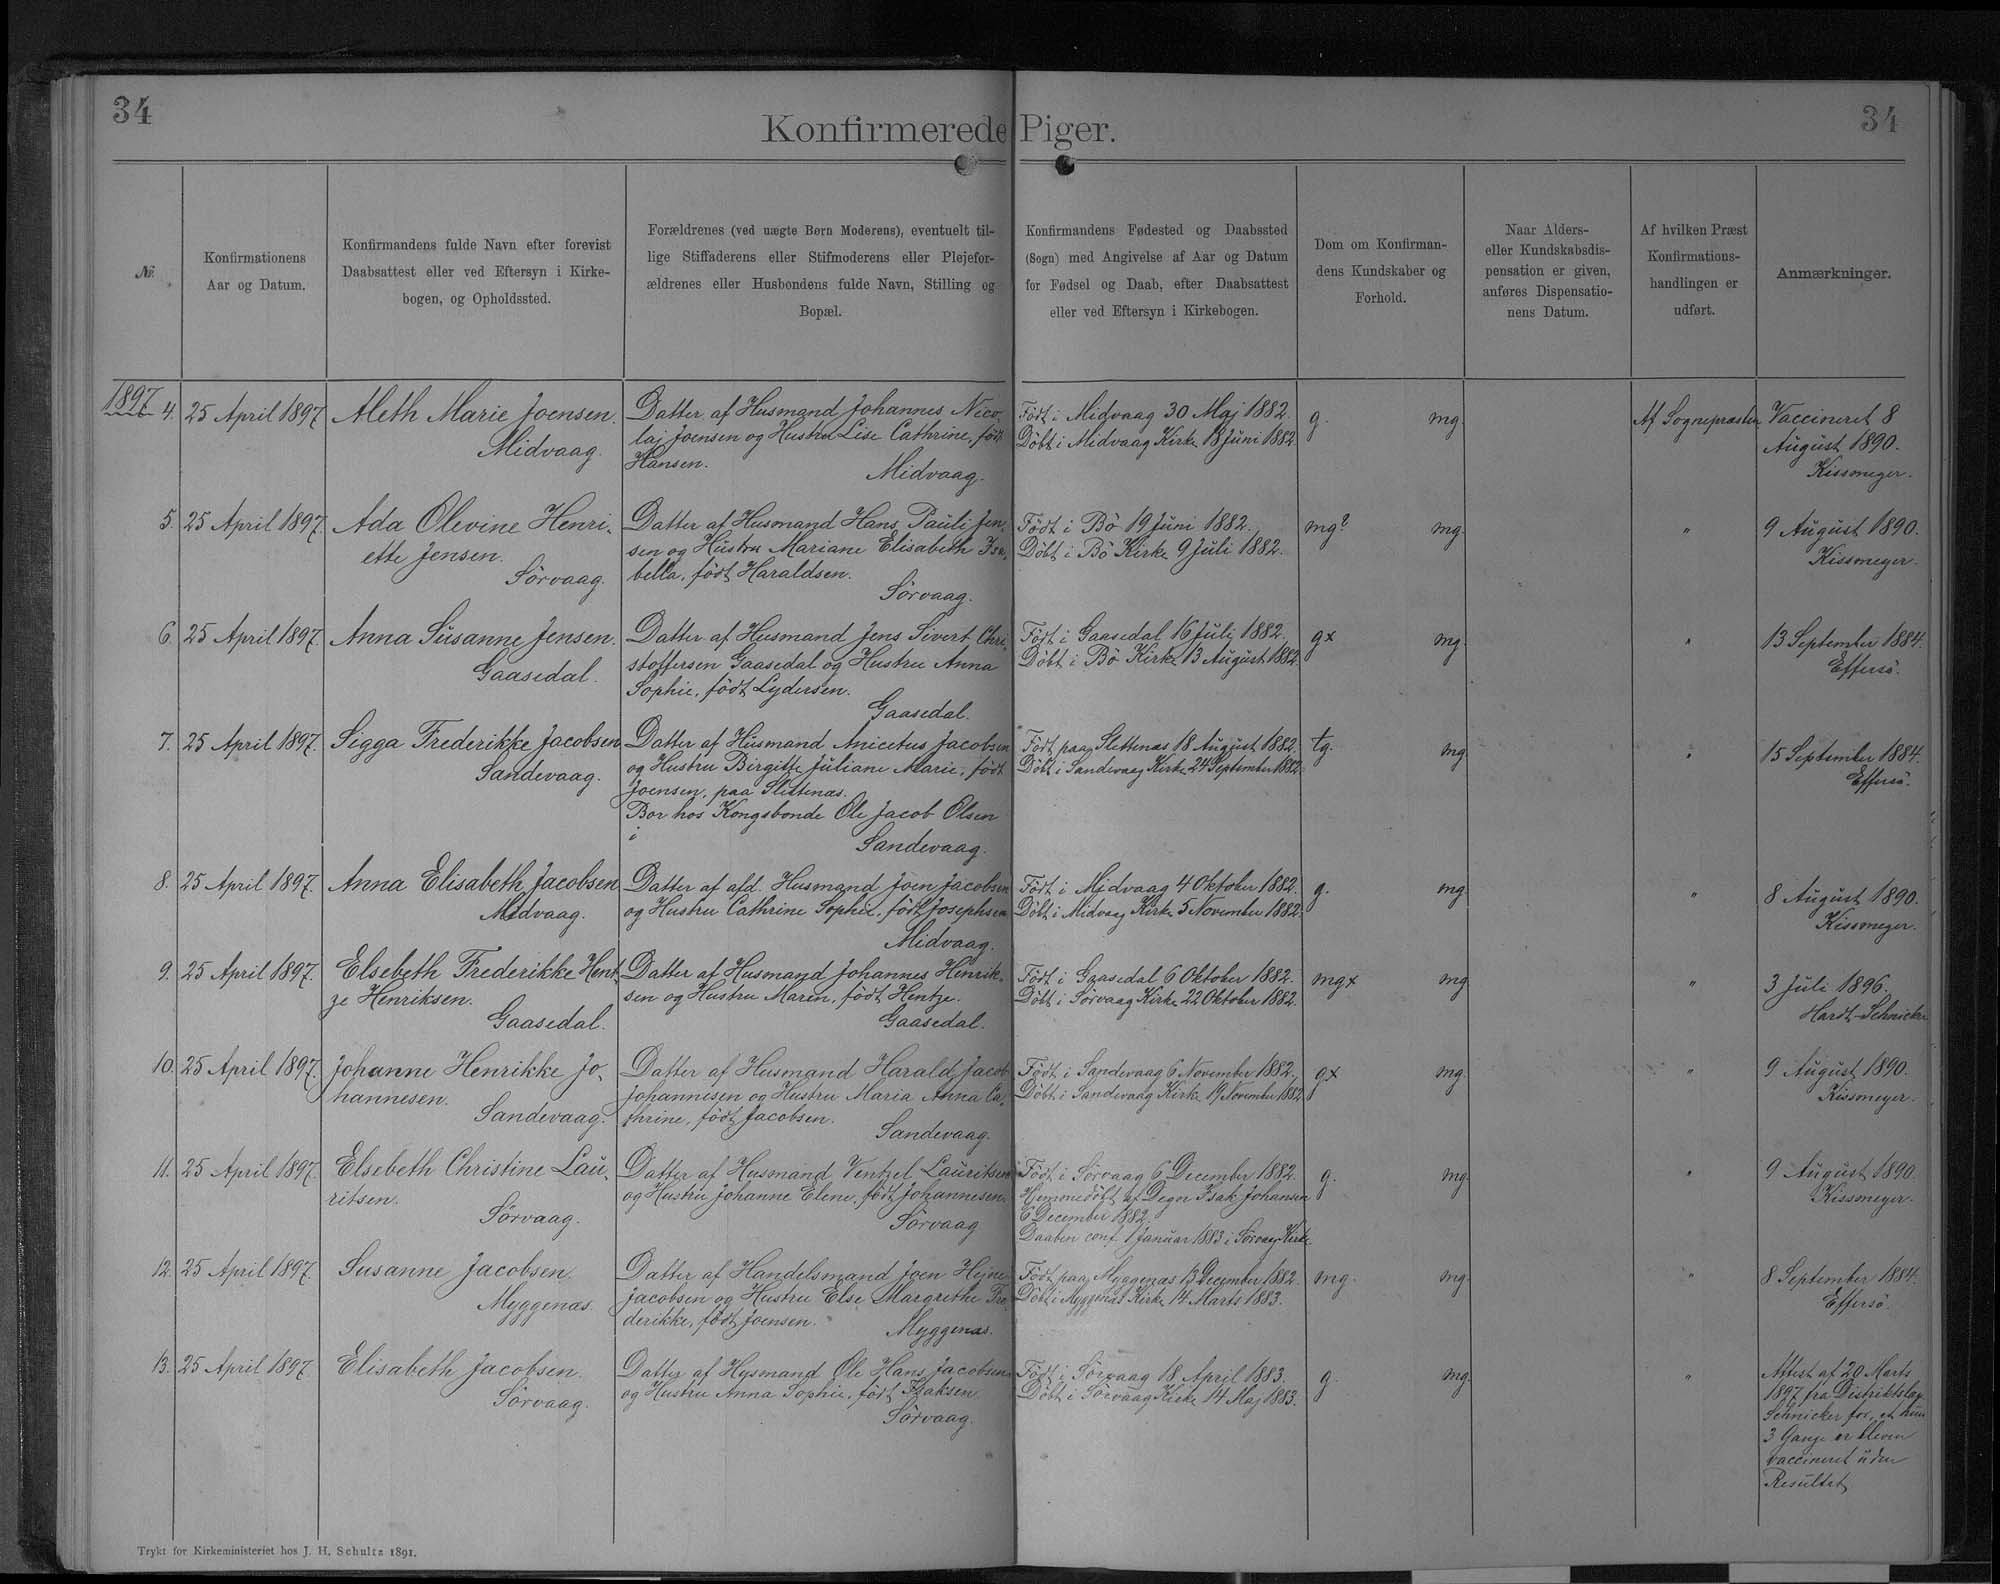 34
34
Konfirmerede Piger.
№
Konfirmationens
Aar og Datum.
Konfirmandens fulde Navn efter forevist
Daabsattest eller ved Eftersyn i Kirke-
bogen, og Opholdssted.
Forældrenes (ved uægte Børn Moderens), eventuelt til-
lige Stiffaderens eller Stifmoderens eller Plejefor-
ældrenes eller Husbondens fulde Navn, Stilling og
Bopæl.
Konfirmandens Fødested og Daabssted
(Sogn) med Angivelse af Aar og Datum
for Fødsel og Daab, efter Daabsattest
eller ved Eftersyn i Kirkebogen.
Dom om Konfirman-
dens Kundskaber og
Forhold.
Naar Alders-
eller Kundskabsdis-
pensation er given,
anføres Dispensatio-
nens Datum.
Af hvilken Præst
Konfirmations-
handlingen er
udført.
Anmærkninger.
1897
4.
25 April 1897
Aleth Marie Joensen.
Midvaag.
Datter af Husmand Johannes Nico-
laj Joensen og Hustru Lise Cathrine, født
Hansen.
Midvaag.
Født i Midvaag 30 Maj 1882.
Döbt i Midvaag Kirke 18 Juni 1882.
g.
mg.
Af Sognepræsten
Vaccineret 8
August 1890.
Kissmeyer.
5.
25 April 1897.
Ada Olevine Henri-
ette Jensen.
Sörvaag.
Datter af Husmand Hans Pauli Jen-
sen og Hustru Mariane Elisabeth Isa-
bella, födt Haraldsen.
Sörvaag.
Födt i Bö 19 Juni 1882.
Döbt i Bö Kirke 9 Juli 1882.
mg?
mg.
"
9 August 1890.
Kissmeyer.
6.
25 April 1897.
Anna Susanne Jensen.
Gaasedal.
Datter af Husmand Jens Sivert Chri-
stoffersen Gaasedal og Hustru Anna
Sophie, födt Lydersen.
Gaasedal.
Födt i Gaasedal 16 Juli 1882.
Döbt i Bö Kirke 13 August 1882.
gx
mg.
"
13 September 1884.
Effersö.
7.
25 April 1897.
Sigga Frederikke Jacobsen
Sandevaag.
Datter af Husmand Anicetus Jacobsen
og Hustru Birgitte Juliane Marie, födt
Joensen, paa Slettenæs.
Bor hos Kongsbonde Ole Jacob Olsen
i
Sandevaag.
Födt paa Slettenæs 18 August 1882.
Döbt i Sandevaag Kirke 24 September 1882.
tg.
mg
"
15 September 1884.
Effersö.
8.
25 April 1897.
Anna Elisabeth Jacobsen
Midvaag.
Datter af afd. Husmand Joen Jacobsen
og Hustru Cathrine Sophie, födt Josephsen
Midvaag.
Födt i Midvaag 4 Oktober 1882.
Döbt i Midvaag Kirke 5 November 1882.
g.
mg.
"
8 August 1890.
Kissmeyer.
9.
25 April 1897.
Elsebeth Frederikke Hent-
ze Henriksen.
Gaasedal.
Datter af Husmand Johannes Henrik-
sen og Hustru Maren, födt Hentze.
Gaasedal.
Födt i Gaasedal 6 Oktober 1882.
Döbt i Sörvaag Kirke 22 Oktober 1882.
mgx
mg
"
3 Juli 1896.
Hardt-Schnicker
10.
25 April 1897.
Johanne Henrikke Jo-
hannesen.
Sandevaag.
Datter af Husmand Harald Jacob
Johannesen og Hustru Maria Anna Ca-
thrine, födt Jacobsen.
Sandevaag.
Födt i Sandevaag 6 November 1882.
Döbt i Sandevaag Kirke 19 November 1882
gx
mg
"
9 August 1890.
Kissmeyer.
11.
25 April 1897.
Elsebeth Christine Lau-
ritsen.
Sörvaag.
Datter af Husmand Ventzel Lauritsen
og Hustru Johanne Elene, födt Johannesen.
Sörvaag
Födt i Sörvaag 6 December 1882.
Hjemmedöbt af Degn Isak Johansen
6 December 1882.
Daaben conf. 1 Januar 1883 i Sörvaag Kirke
g.
mg.
"
9 August 1890.
Kissmeyer.
12.
25 April 1897.
Susanne Jacobsen.
Myggenæs.
Datter af Handelsmand Joen Hejne
Jacobsen og Hustru Else Margrethe Fre-
derikke, födt Joensen.
Myggenæs.
Födt paa Myggenæs 13 December 1882.
Döbt i Myggenæs Kirke 14 Marts 1883.
mg.
mg.
"
8 September 1884.
Effersö.
13.
25 April 1897.
Elisabeth Jacobsen.
Sörvaag.
Datter af Husmand Ole Hans Jacobsen
og Hustru Anna Sophie, födt Isaksen.
Sörvaag.
Födt i Sörvaag 18 April 1883.
Döbt i Sörvaag Kirke 14 Maj 1883.
g.
mg.
"
Attest af 20 Marts
1897 fra Distriktslæ.
Schnicker for, at hun
3 Gange er bleven
vaccineret uden
Resultat
Trykt for Kirkeministeriet hos J. H. Schultz 1891.